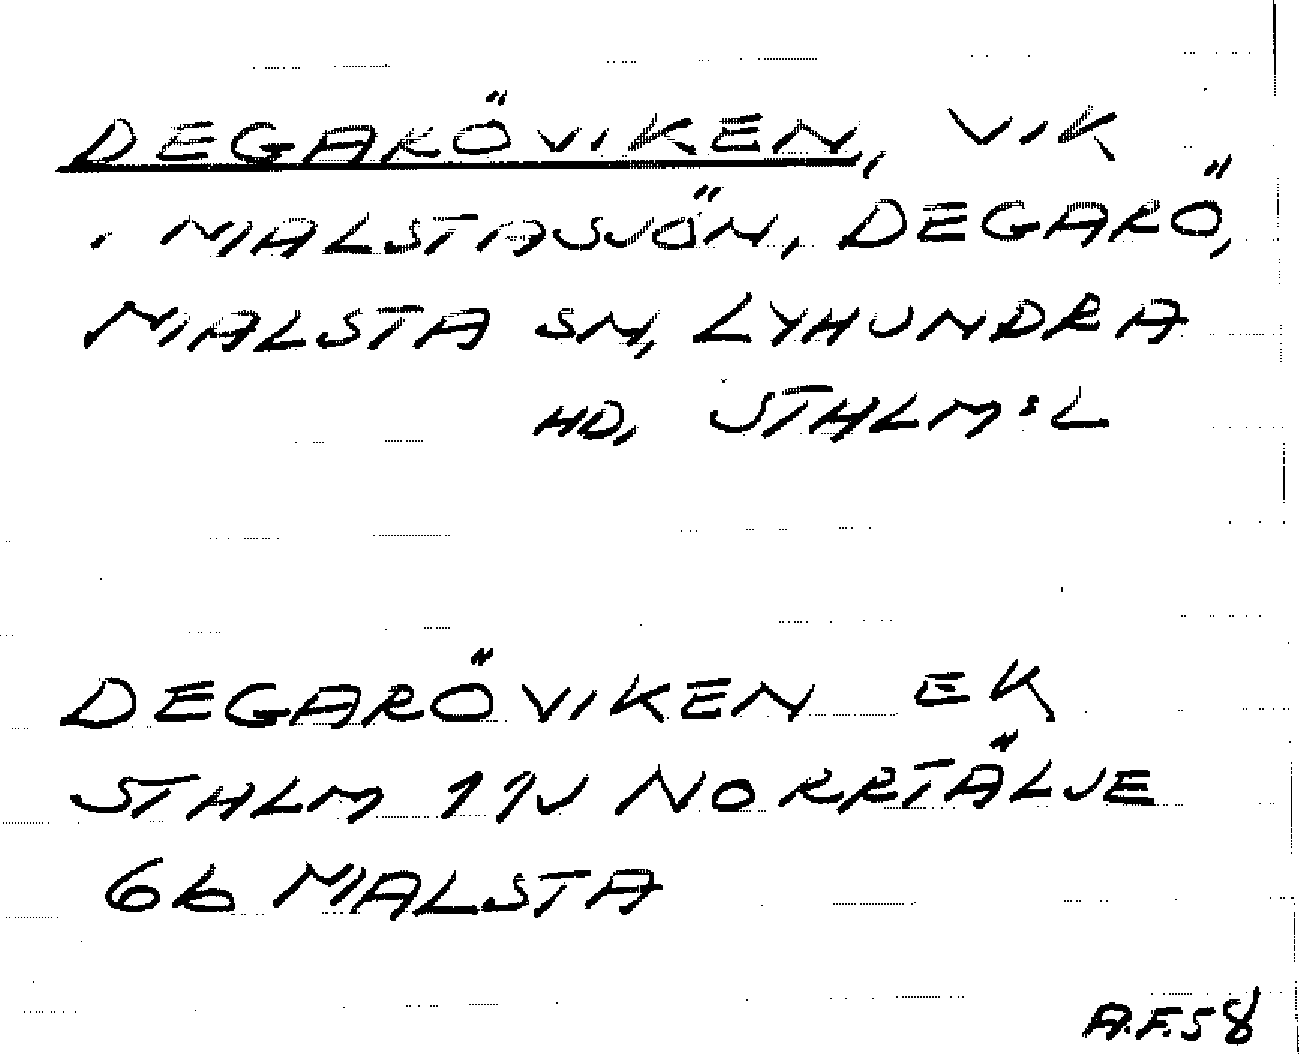 DEGARÖVIKEN, VIK
I MALSTASJÖN, DEGARÖ,
MALSTA SN, LYHUNDRA
HD, STHLM:L
DEGARÖVIKEN EK
STHLM 11J NORRTÄLJE
6b MALSTA
A.F.58